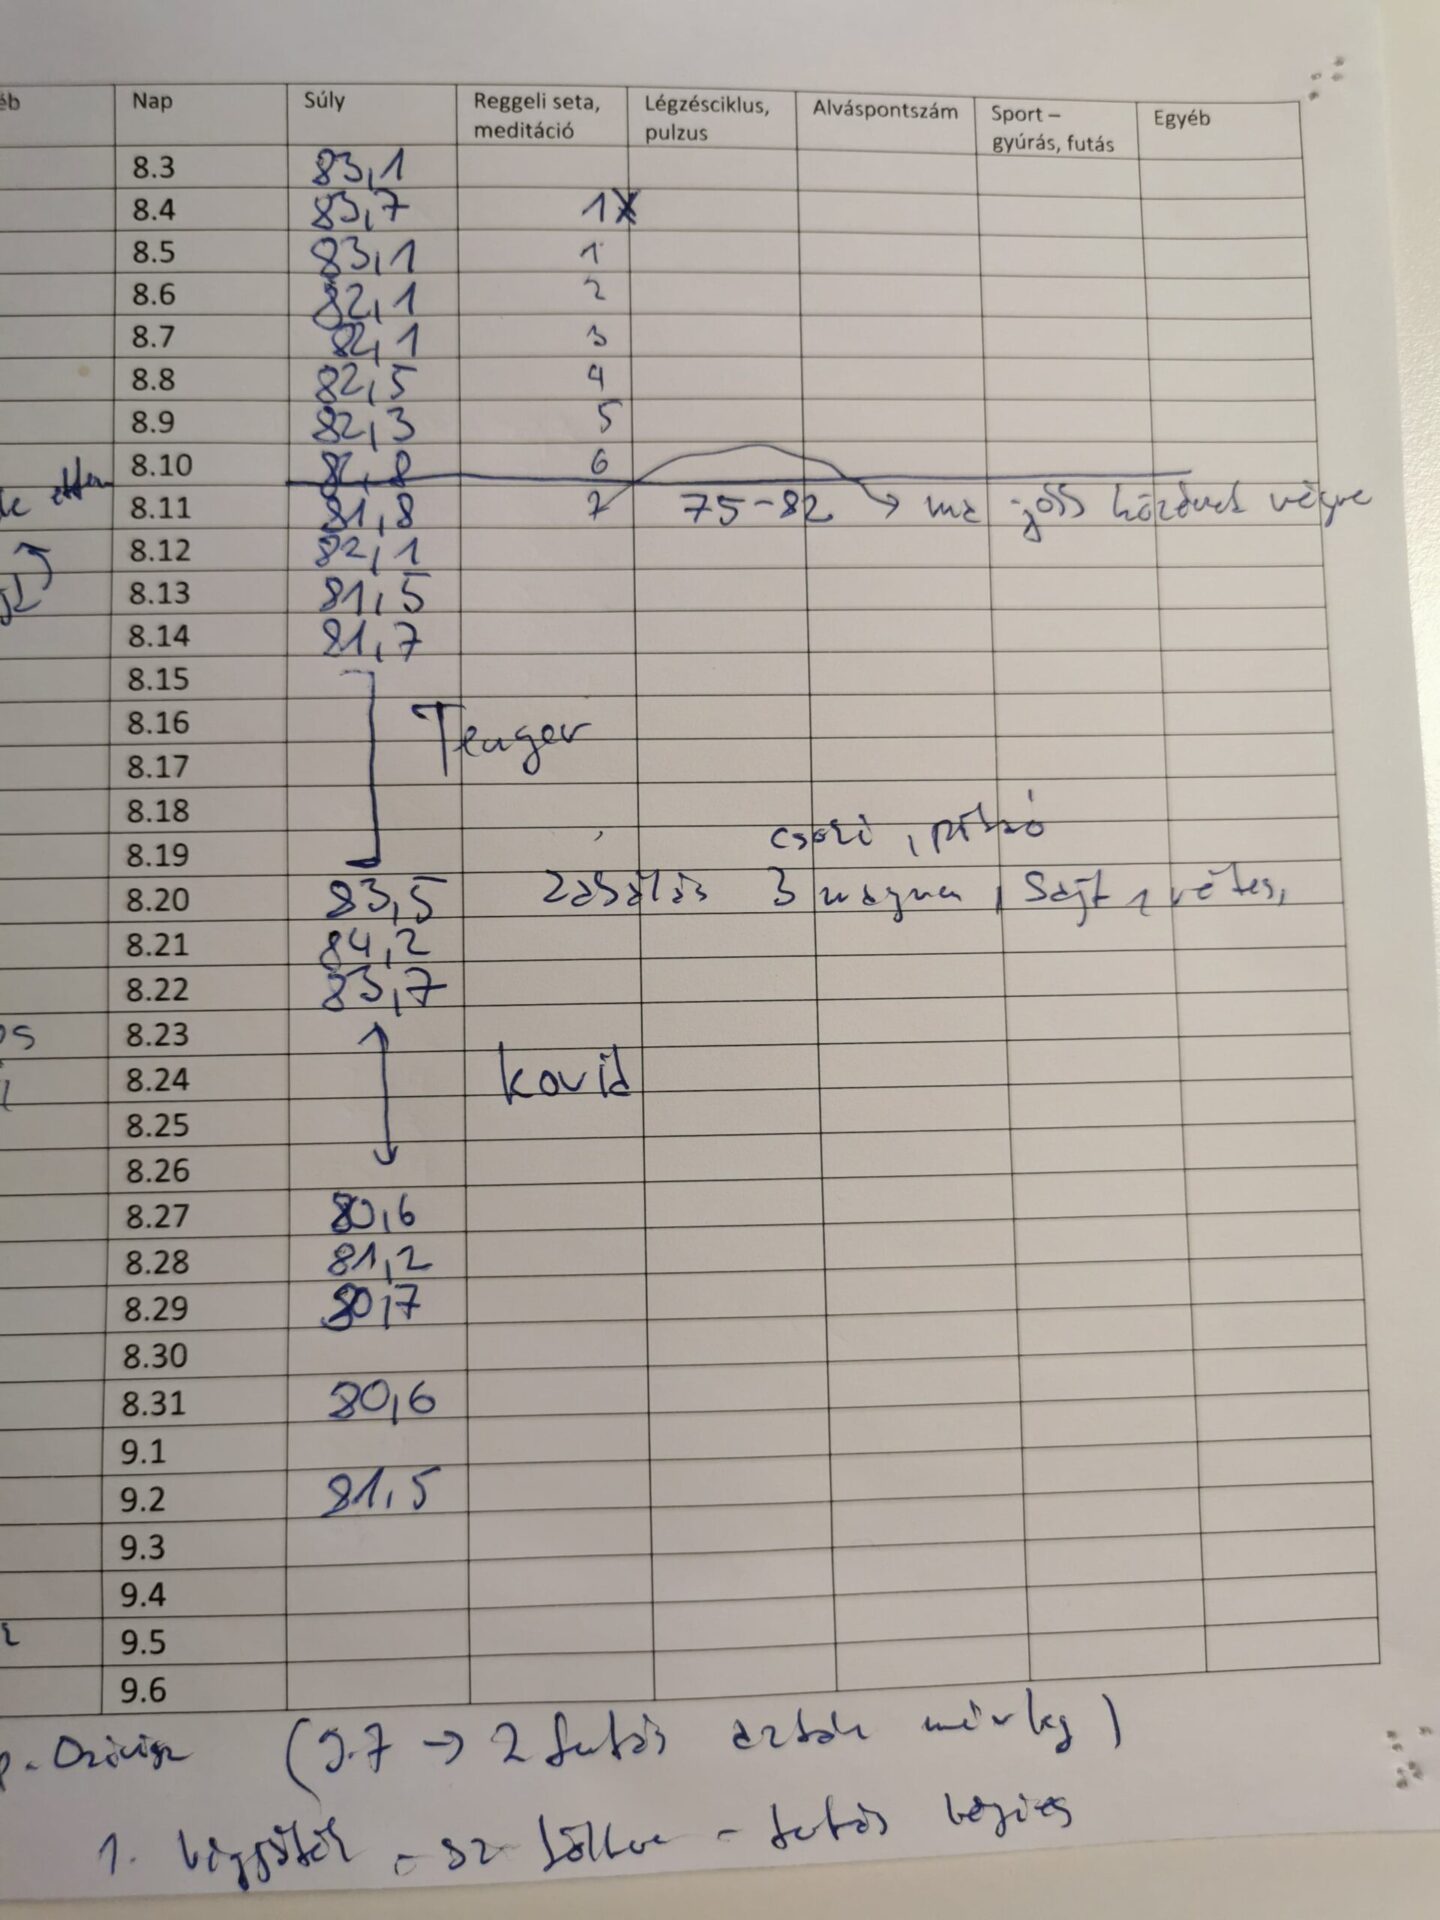 éb Nap Súly Reggeli seta, meditáció Légzésciklus, pulzus Alváspontszám Sport – gyúrás, futás Egyéb
8.3 83,1
8.4 83,7 1
8.5 83,1 1
8.6 82,1 2
8.7 82,1 3
8.8 82,5 4
8.9 82,3 5
8.10 82,8 6
8.11 81,8 7 75-82 → ma jöss végre
8.12 82,1
8.13 81,5
8.14 81,7
8.15
8.16 Tenger
8.17
8.18
8.19 csoki, pitzó
8.20 83,5 zabálás 3 magnum, sajt, rétes,
8.21 84,2
8.22 83,7
8.23
8.24 kovid
8.25
8.26
8.27 80,6
8.28 81,2
8.29 80,7
8.30
8.31 80,6
9.1
9.2 81,5
9.3
9.4
9.5
9.6
(9.7 → 2 futás aztán mérleg)
1. - futás